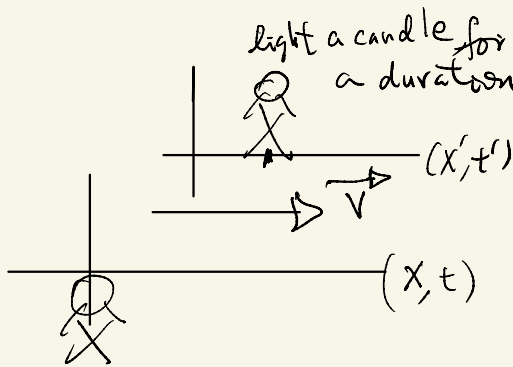 light a candle for
a duration
(x', t')
V
(x, t)